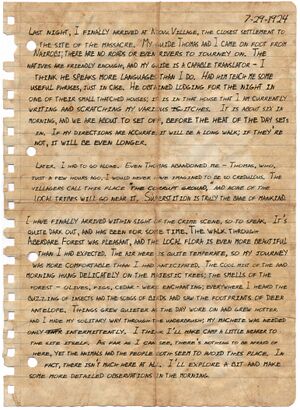 7-29-1924
Last night, I finally arrived at Ndovu Village, the closest settlement to
the site of the massacre. My guide Thomas and I came on foot from
Nairobi; there are no roads or even rivers to journey on. The
natives are friendly enough, and my guide is a capable translator – I
think he speaks more languages than I do. Had him teach me some
useful phrases, just in case. He obtained lodging for the night in
one of their small thatched houses; it is in that house that I am currently
writing and scratching my various itches. It is about six in
morning, and we are about to set off, before the heat of the day sets
in. If my directions are accurate it will be a long walk; if they're
not, it will be even longer.
Later. I had to go alone. Even Thomas abandoned me – Thomas, who,
just a few hours ago, I would never have imagined to be so credulous. The
villagers call this place the corrupt ground, and none of the
local tribes will go near it. Superstition is truly the bane of mankind.
I have finally arrived within sight of the crime scene, so to speak. It's
quite dark out, and has been for some time. The walk through
Aberdare Forest was pleasant, and the local flora is even more beautiful
than I had expected. The air here is quite temperate, so my journey
was more comfortable than I had anticipated. The cool mist of the
morning hung delicately on the majestic trees; the smells of the
forest – olives, figs, cedar – were enchanting; everywhere I heard the
buzzing of insects and the songs of birds and saw the footprints of deer
antelope. Things grew quieter as the day wore on and grew hotter
and I made my solitary way through the underbrush; my machete was needed
only intermittently. I think I'll make camp a little nearer to
the site itself. As far as I can see, there's nothing to be afraid of
here, yet the animals and the people both seem to avoid this place. In
fact, there isn't much here at all. I'll explore a bit and make
some more detailed observations in the morning.